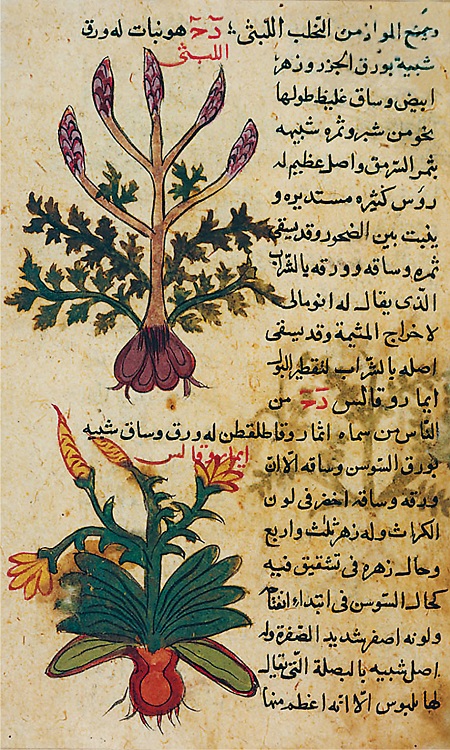 ويمنع المواد من التحلب اللبثي دح هو نبات له ورق
اللبثي
شبيه بورق الجزر وزهر
ابيض وساق غليظ طولها
نحو من شبر وثمره شبيهه
بثمر السرمق واصل عظيم له
روس كثيره مستديره و
ينبت بين الصخور وقد يسقى
ثمره وساقه وورقه بالشراب
الذي يقال له انومالي
لاخراج المشيمة وقد يسقى
اصله بالشراب لتقطير البول
ايماروقالس دح من
الناس من سماه انماروقاطلقطن له ورق وساق شبيه
ايماروقالس
بورق السوسن وساقه الا ان
ورقه وساقه اخضر في لون
الكراث وله زهر ثلث واربع
وحال زهره في تشقيق فيه
كحال السوسن في ابتداء انفتاح
ولونه اصفر شديد الصفرة وله
اصل شبيه بالبصلة التي يقال
لها بلبوس الا انه اعظم منها